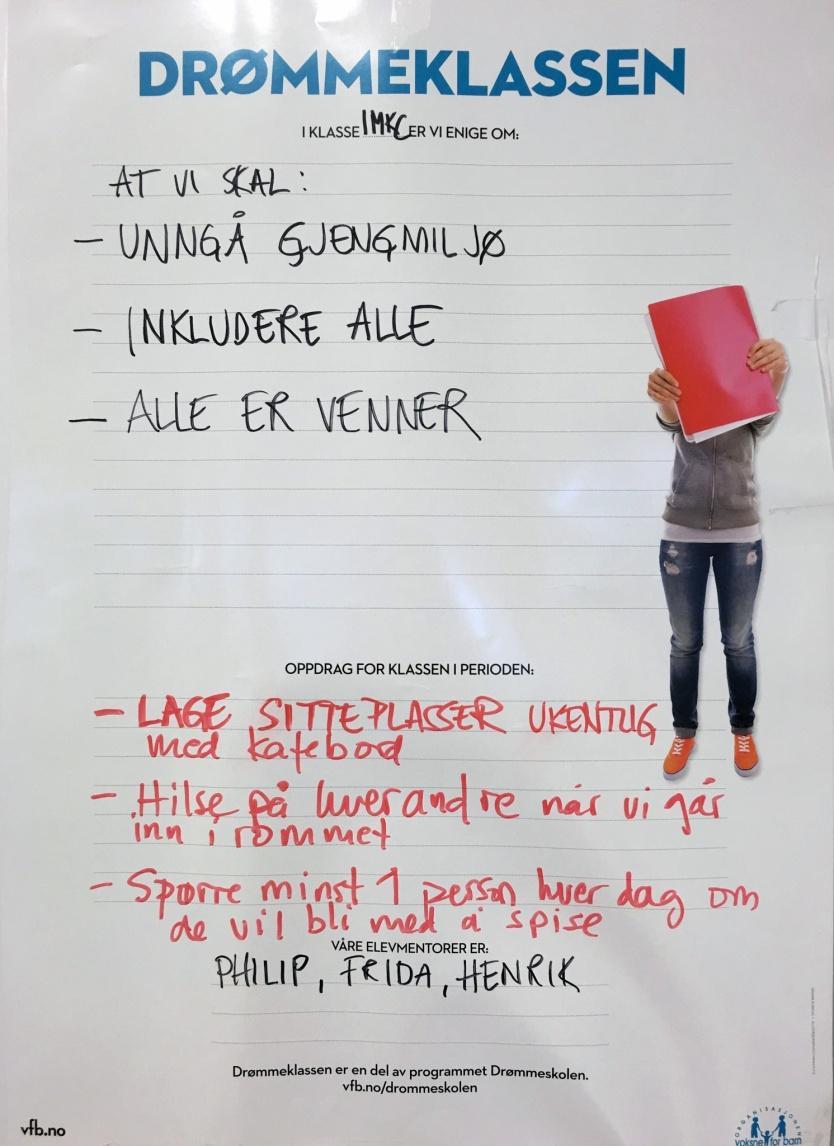 DRØMMEKLASSEN
I KLASSE 1MKC ER VI ENIGE OM:
AT VI SKAL:
- UNNGÅ GJENGMILJØ
- INKLUDERE ALLE
- ALLE ER VENNER
OPPDRAG FOR KLASSEN I PERIODEN:
- LAGE SITTEPLASSER UKENTLIG
med kafebod
- Hilse på hverandre når vi går
inn i rommet
- Spørre minst 1 person hver dag om
de vil bli med å spise
VÅRE ELEVMENTORER ER:
PHILIP, FRIDA, HENRIK
Drømmeklassen er en del av programmet Drømmeskolen.
vfb.no/drommeskolen
vfb.no
ORGANISASJONEN
voksne for barn